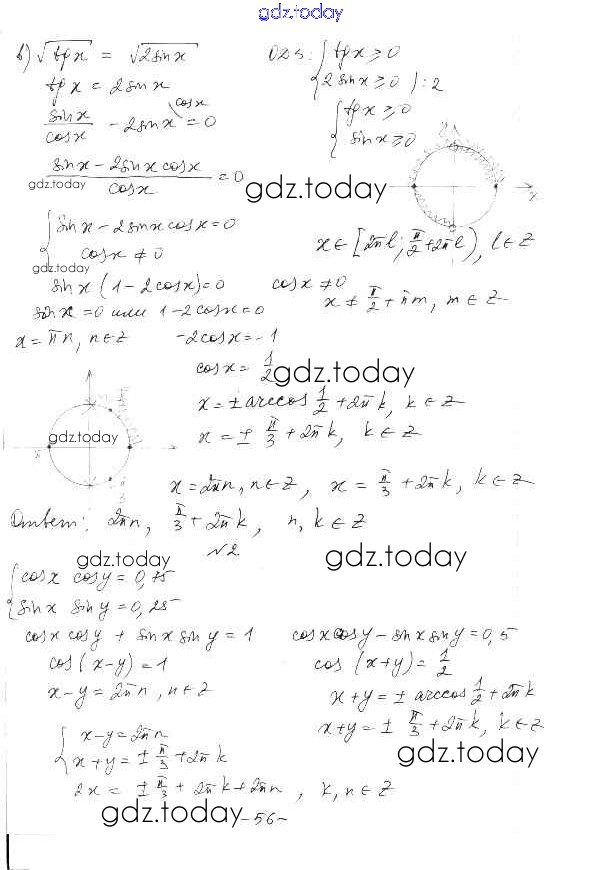 gdz.today
в) √tg x = √2sin x ОДЗ: { tg x ≥ 0
tg x = 2 sin x { 2 sin x ≥ 0 | : 2
sin x / cos x - 2 sin x \cos x = 0 { tg x ≥ 0
{ sin x ≥ 0
(sin x - 2 sin x cos x) / cos x = 0
gdz.today gdz.today
{ sin x - 2 sin x cos x = 0 x ∈ [2πl; π/2 + 2πl), l ∈ Z
{ cos x ≠ 0
gdz.today
sin x (1 - 2cos x) = 0 cos x ≠ 0
x ≠ π/2 + πm, m ∈ Z
sin x = 0 или 1 - 2cos x = 0
x = πn, n ∈ Z -2cos x = -1
cos x = 1/2
gdz.today
x = ± arccos 1/2 + 2πk, k ∈ Z
x = ± π/3 + 2πk, k ∈ Z
gdz.today
x = 2πn, n ∈ Z, x = π/3 + 2πk, k ∈ Z
Ответ: 2πn, π/3 + 2πk, n, k ∈ Z
№2
gdz.today gdz.today
{ cos x cos y = 0,75
{ sin x sin y = 0,25
cos x cos y + sin x sin y = 1 cos x cos y - sin x sin y = 0,5
cos (x - y) = 1 cos (x + y) = 1/2
x - y = 2πn, n ∈ Z x + y = ± arccos 1/2 + 2πk
x + y = ± π/3 + 2πk, k ∈ Z
{ x - y = 2πn
{ x + y = ± π/3 + 2πk
gdz.today
2x = ± π/3 + 2πk + 2πn, k, n ∈ Z
gdz.today
-56-